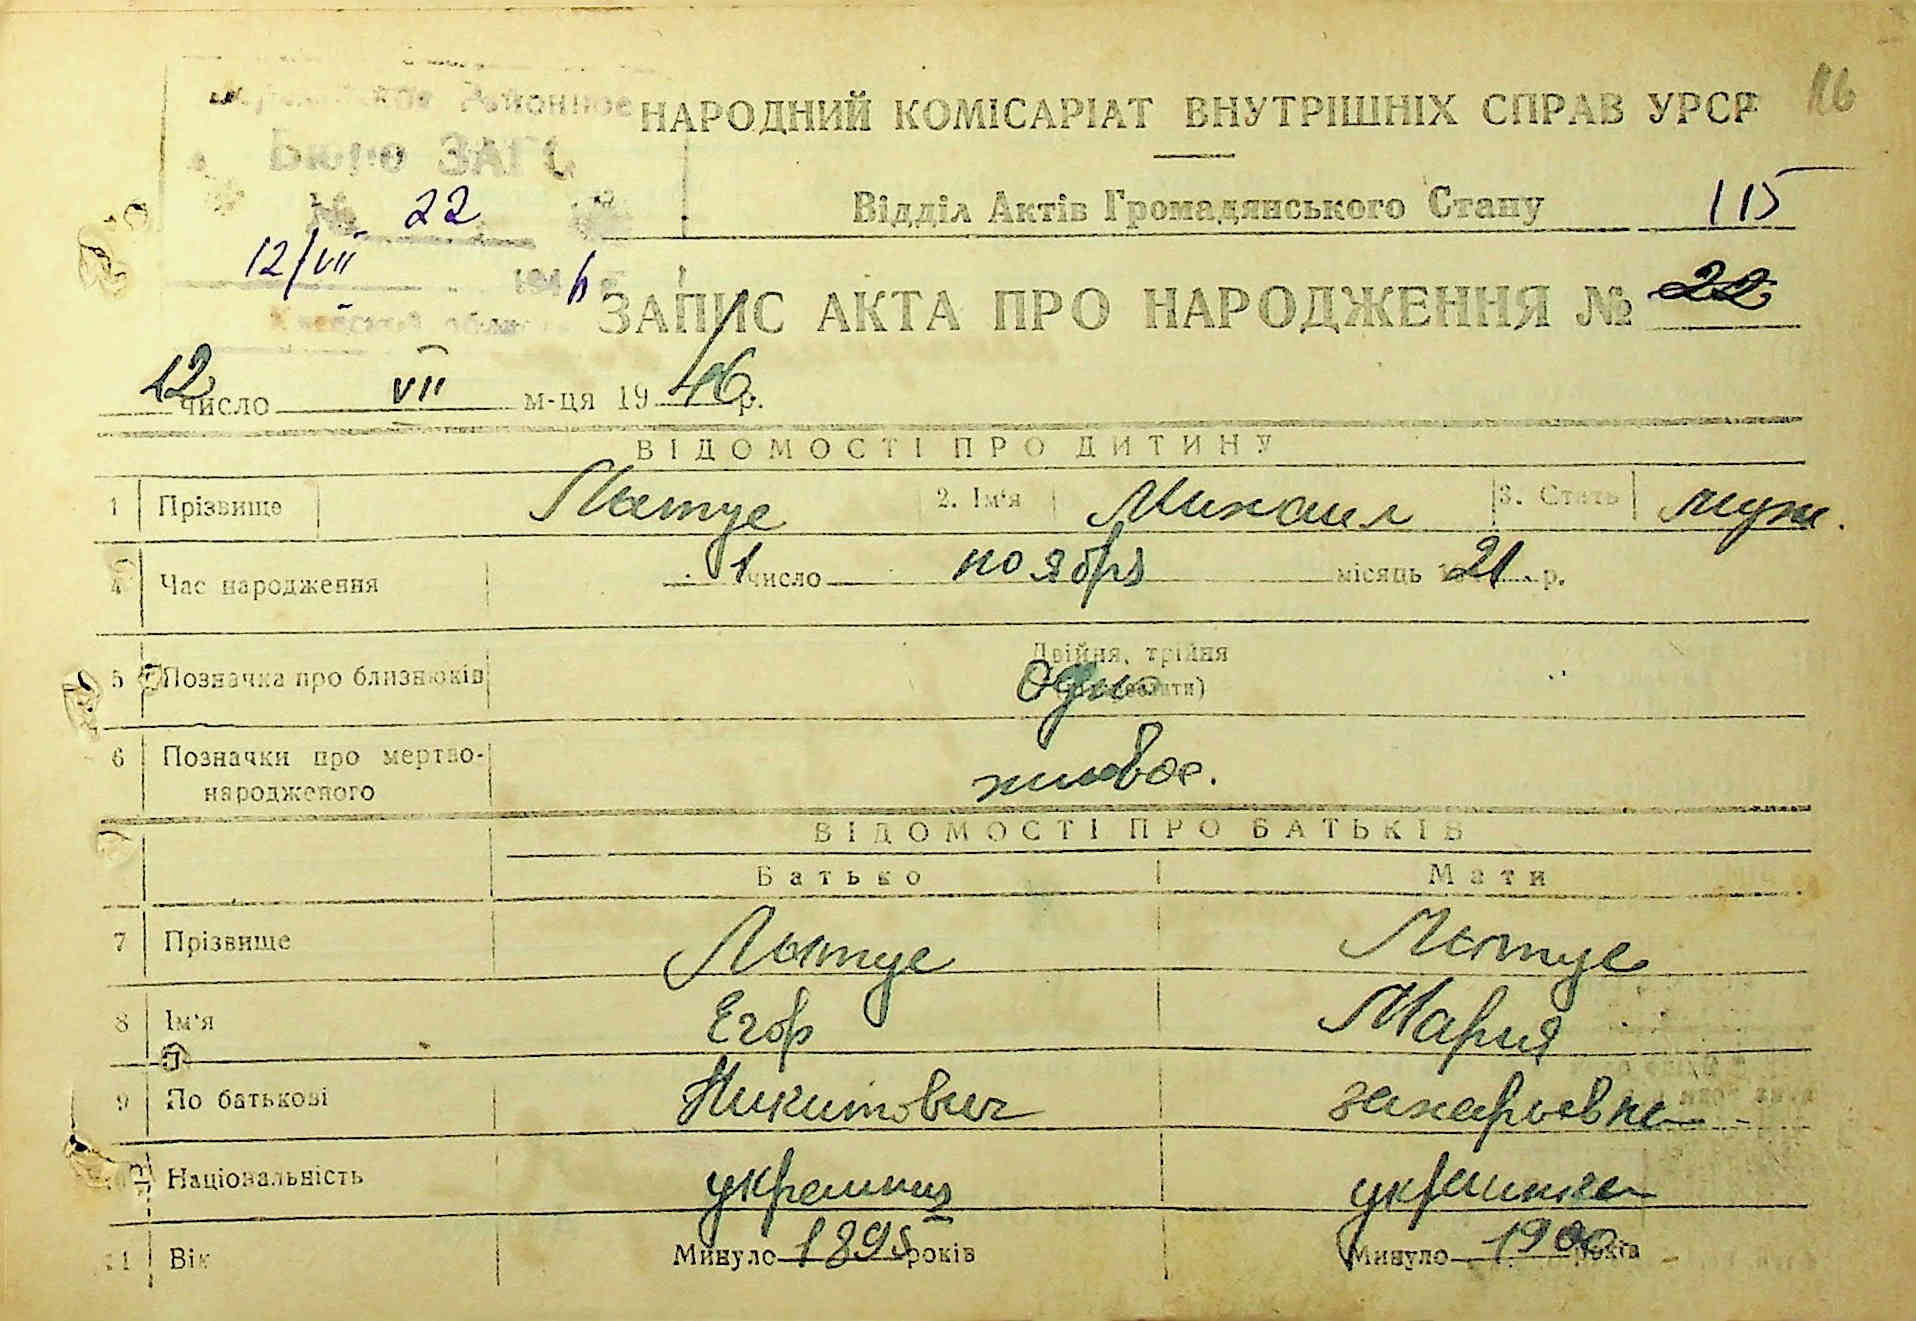 Районное
НАРОДНИЙ КОМІСАРІАТ ВНУТРІШНІХ СПРАВ УРСР 16
Бюро ЗАГС
Відділ Актів Громадянського Стану 115
№ 22
12/VII 1946
ЗАПИС АКТА ПРО НАРОДЖЕННЯ № 22
12 число VII м-ця 1946 р.
ВІДОМОСТІ ПРО ДИТИНУ
1 Прізвище 2. Ім'я Михаил 3. Стать муж.
4 Час народження 1 число ноября місяць 21 р.
5 Позначка про близнюків Двійня, трійня
одно
6 Позначки про мертво-
народженого живое.
ВІДОМОСТІ ПРО БАТЬКІВ
Батько Мати
7 Прізвище
8 Ім'я Егор Мария
9 По батькові Никитович захарьевна
Національність украинец украинка
11 Вік Минуло 1895 років Минуло 1900 років